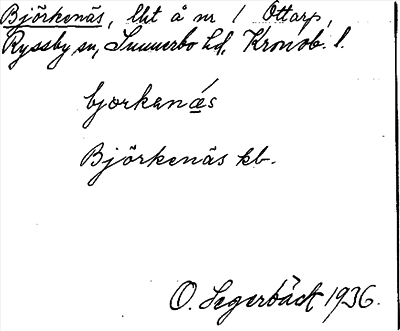 Björkenäs, lht å nr 1 Ottarp,
Ryssby sn, Sunnerbo hd, Kronob. l.
bjorkanǽs
Björkenäs kb.
O. Segerbäck 1936.